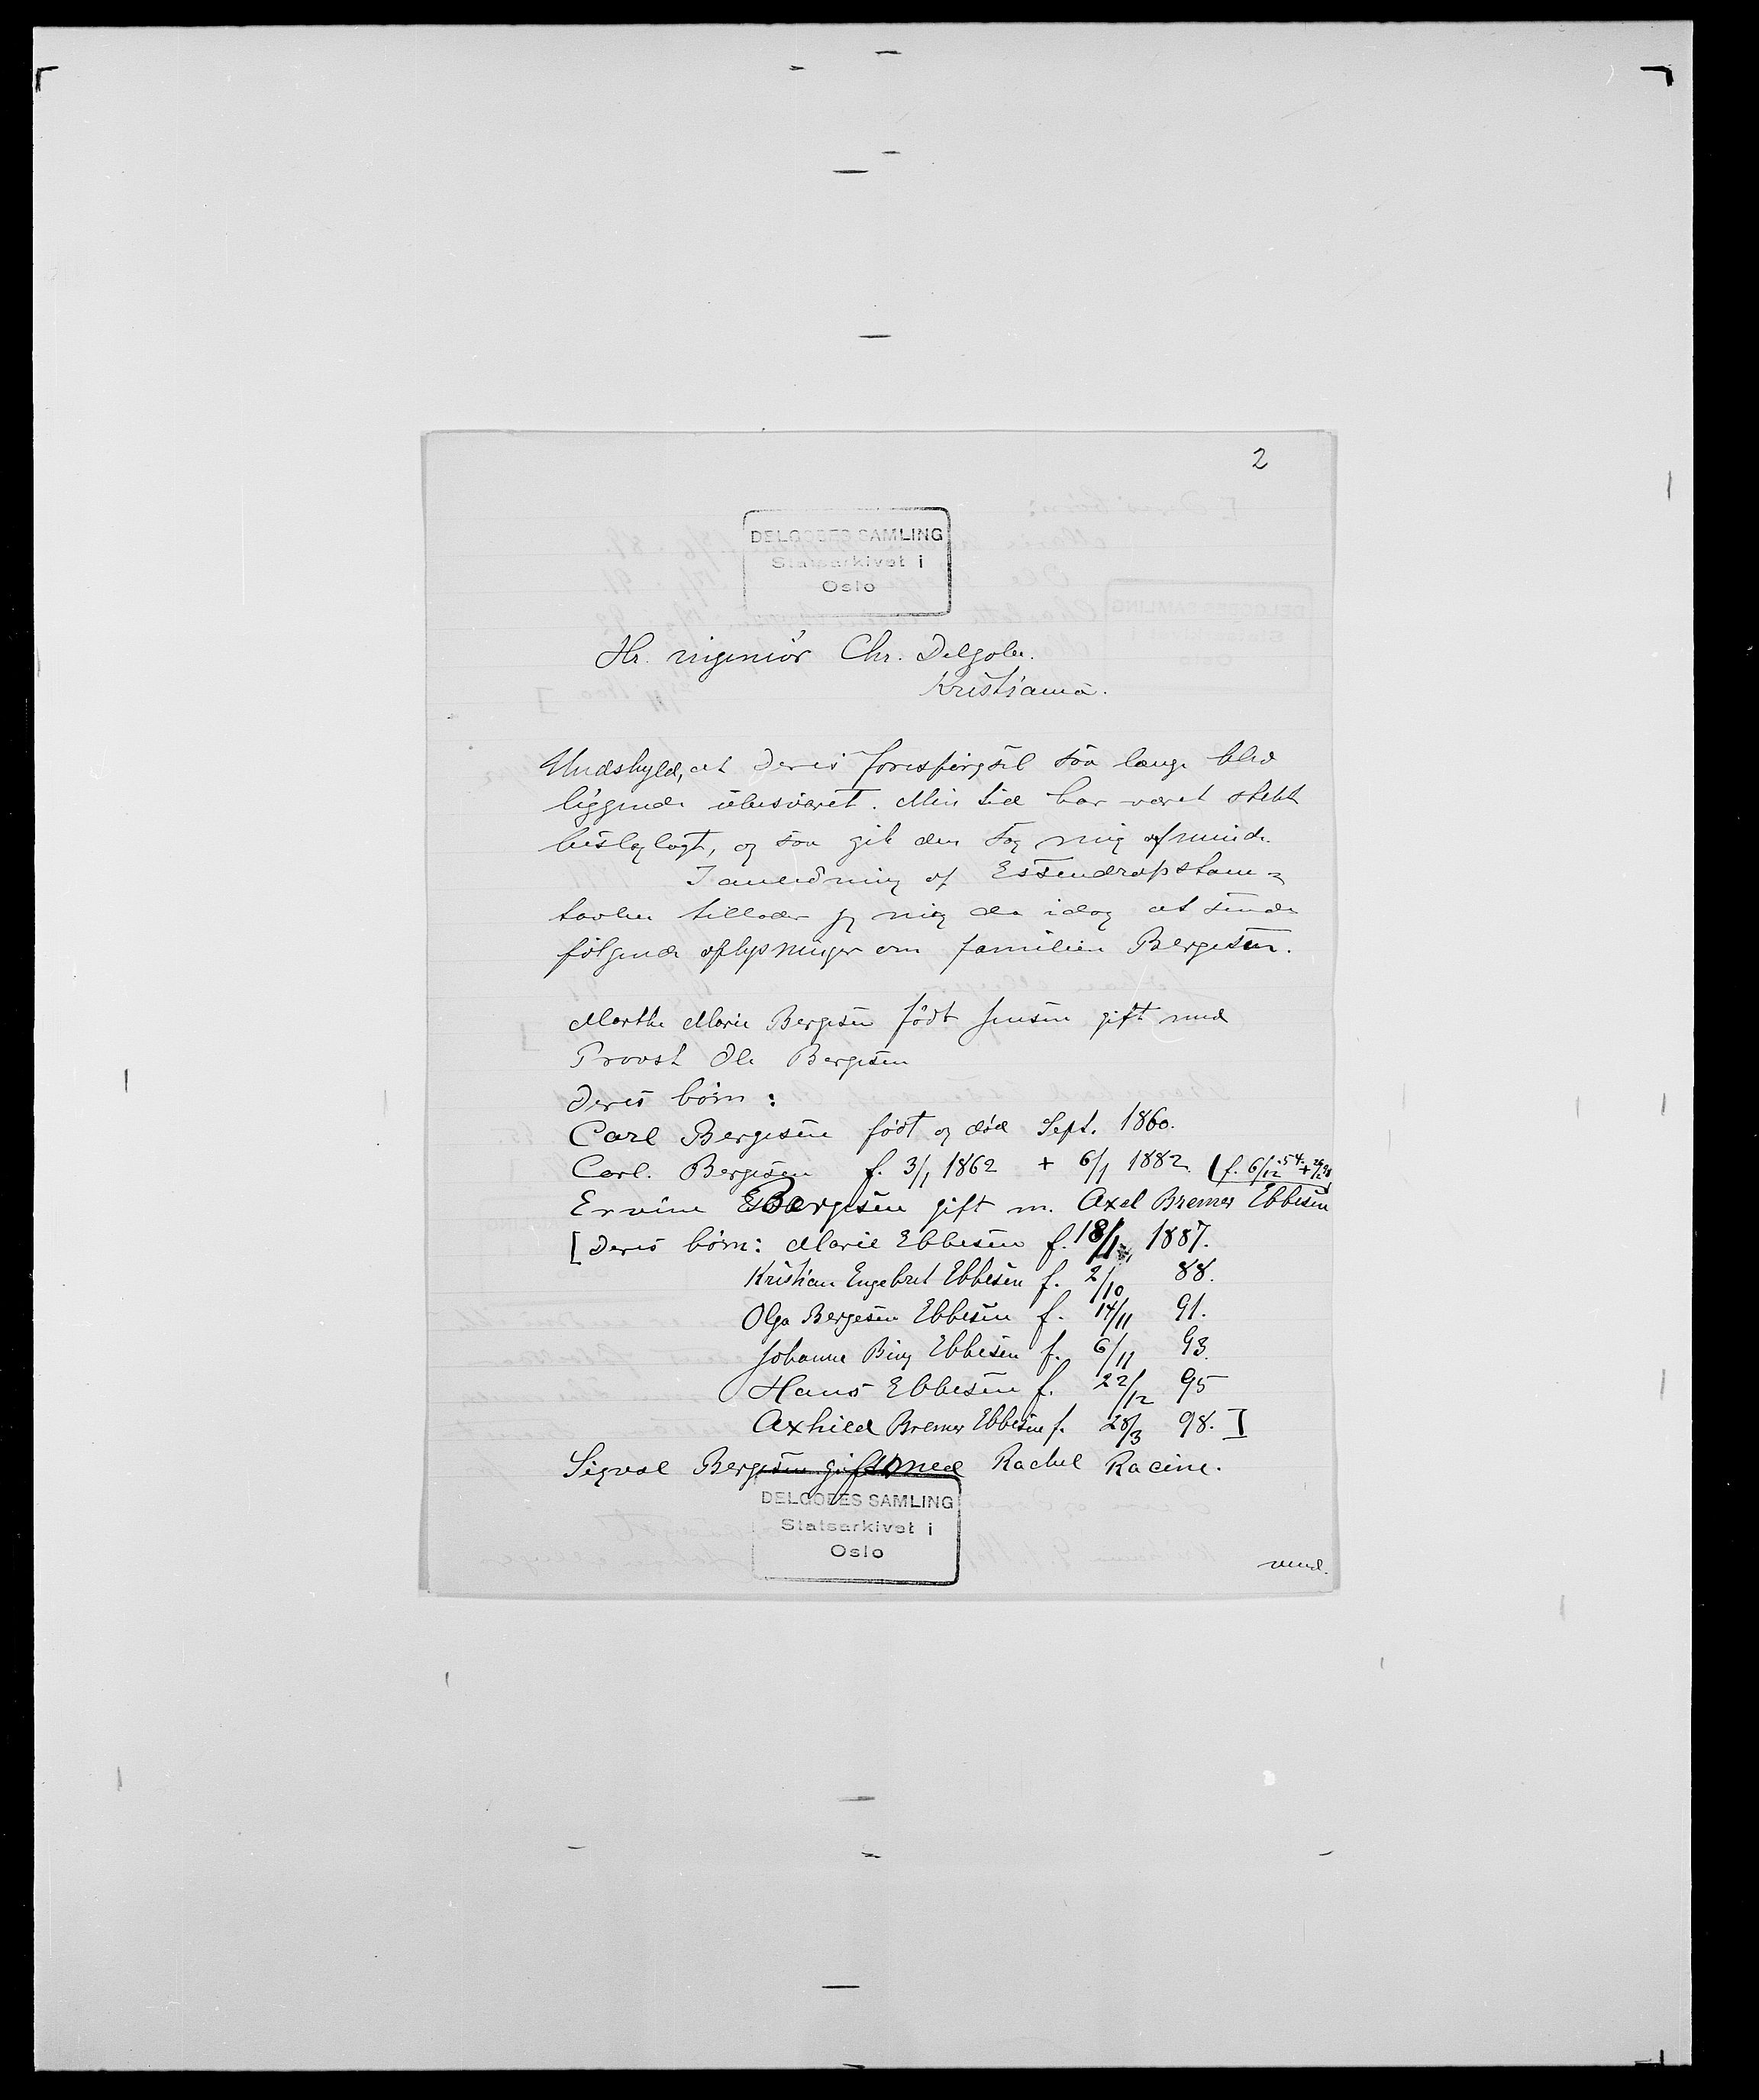 2
DELGOBES SAMLING
Statsarkivet i
Oslo
Hr. ingeniør Chr. Delgobe.
Kristiania.
Undskyld, at Deres forespørgsel saa længe blev
liggende ubesvaret. Min tid har været sterkt
beslaglagt, og saa gik den sag mig af minde.
I anledning af Essendropstam-
tavlen tillader jeg mig da idag at sende
følgende oplysninger om familien Bergesen.
Marthe Marie Bergesen født Jensen gift med
Provst Ole Bergesen
Deres børn:
Carl Bergesen født og død Sept. 1860.
Carl. Bergesen f. 3/1 1862 + 6/1 1882. (f. 6/12 54. +
Ervine Bergesen gift m. Axel Bremer Ebbesen
[Deres børn: Marie Ebbesen f. 18/1 1887.
Kristian Engebret Ebbesen f. 2/10 88.
Olga Bergesen Ebbesen f. 14/11 91.
Johanne Bing Ebbesen f. 6/11 93.
Hans Ebbesen f. 22/12 95
Axhild Bremer Ebbesen f. 28/3 98. ]
Sigval Bergesen gift med Rachel Racine.
DELGOBES SAMLING
Statsarkivet i
Oslo
vend.